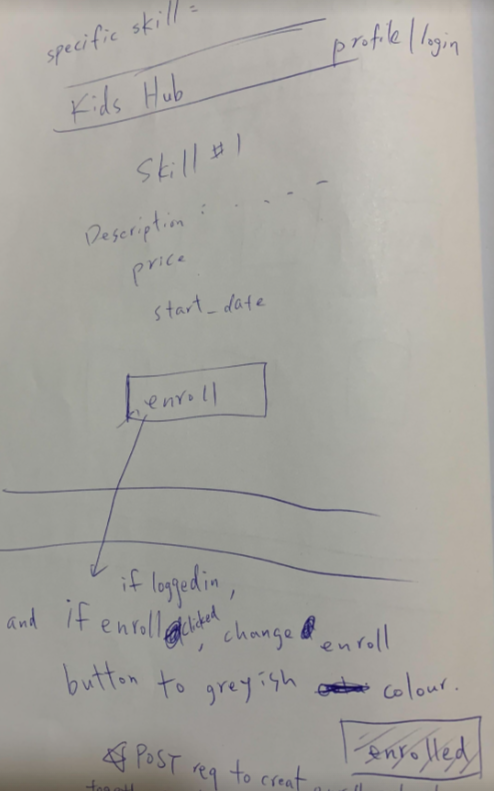 specific skill =
profile/login
Kids Hub
Skill #1
Description : . . . - -
price
start_date
enroll
if loggedin,
and if enroll clicked, change enroll
button to greyish colour.
enrolled
POST req to creat